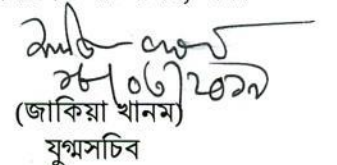 ২৮/০৩/২০১৯
(জাকিয়া খানম)
যুগ্মসচিব